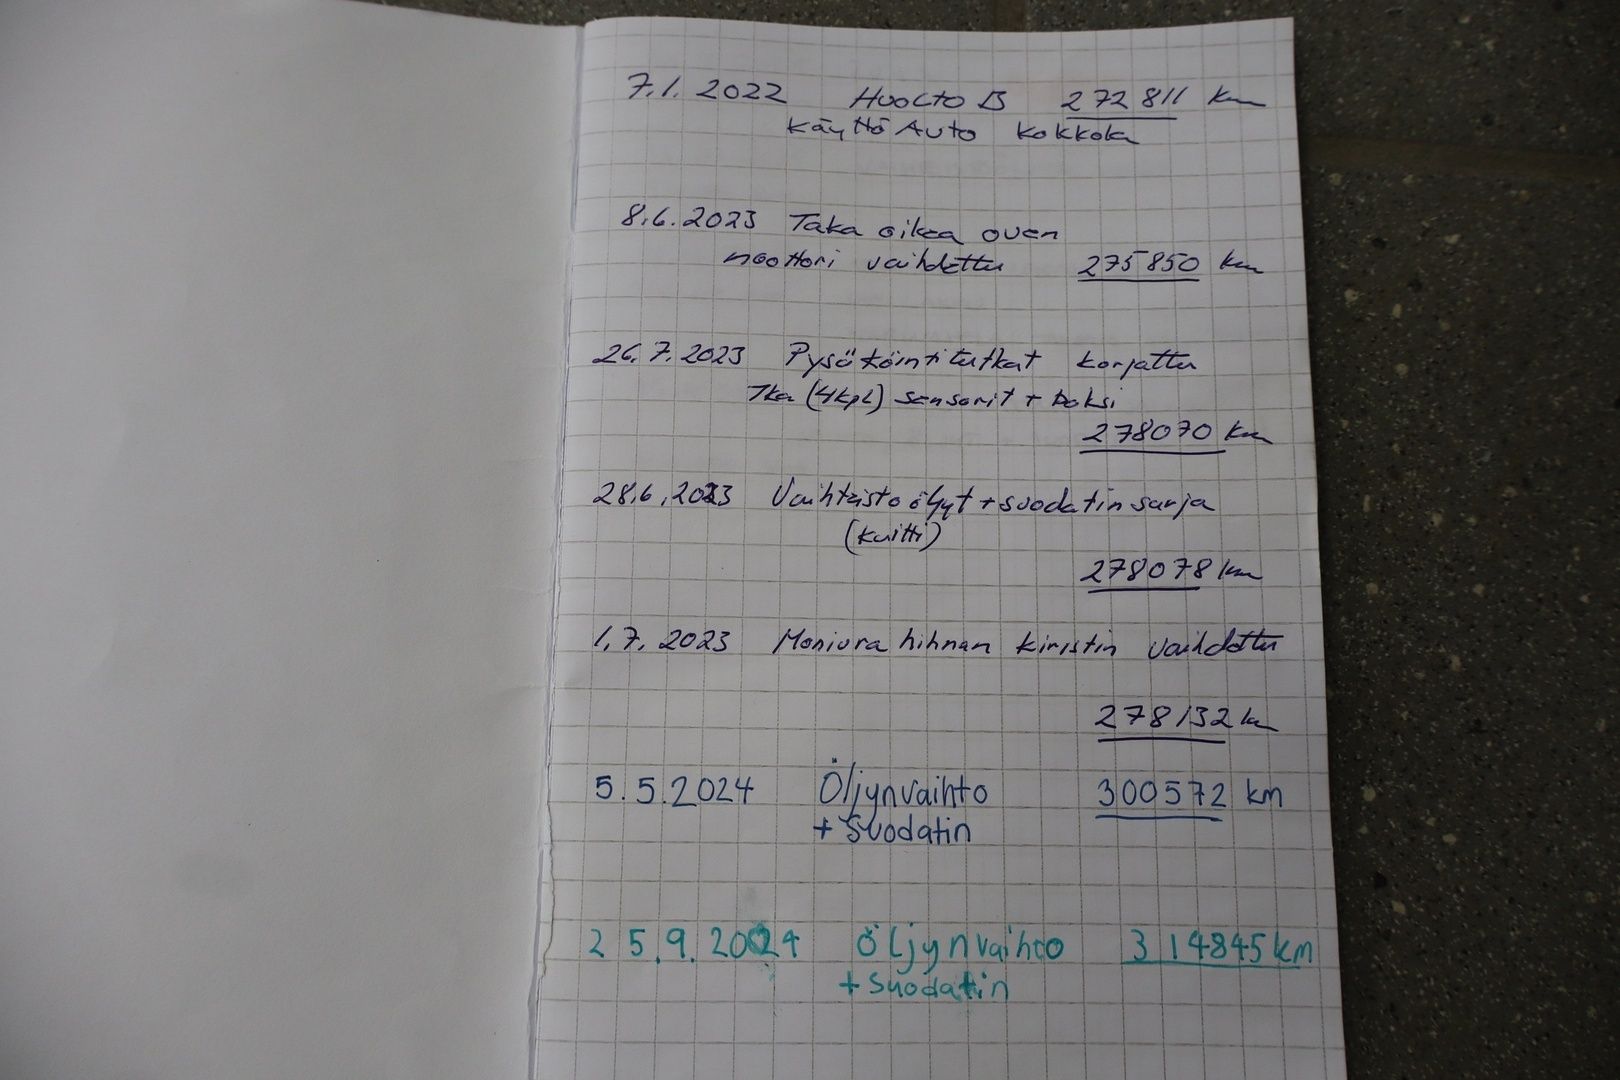 7.1.2022 Huolto B 272811 km
Käyttö Auto Kokkola
8.6.2023 Taka oikea oven
moottori vaihdettu 275850 km
26.7.2023 Pysäköintitutkat korjattu
(4kpl) sensorit + boksi
278070 km
28.6.2023 Vaihteisto öljyt + suodatinsarja
(kuitti)
278078 km
1.7.2023 Moniura hihnan kiristin vaihdettu
278132 km
5.5.2024 Öljynvaihto 300572 km
+ suodatin
25.9.2024 Öljynvaihto 314845 km
+ suodatin